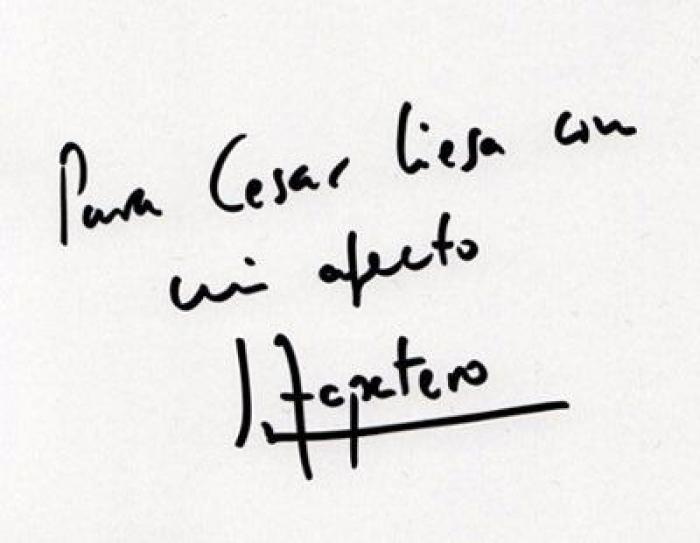 Para Cesar Liesa con
mi afecto
J. L. Zapatero